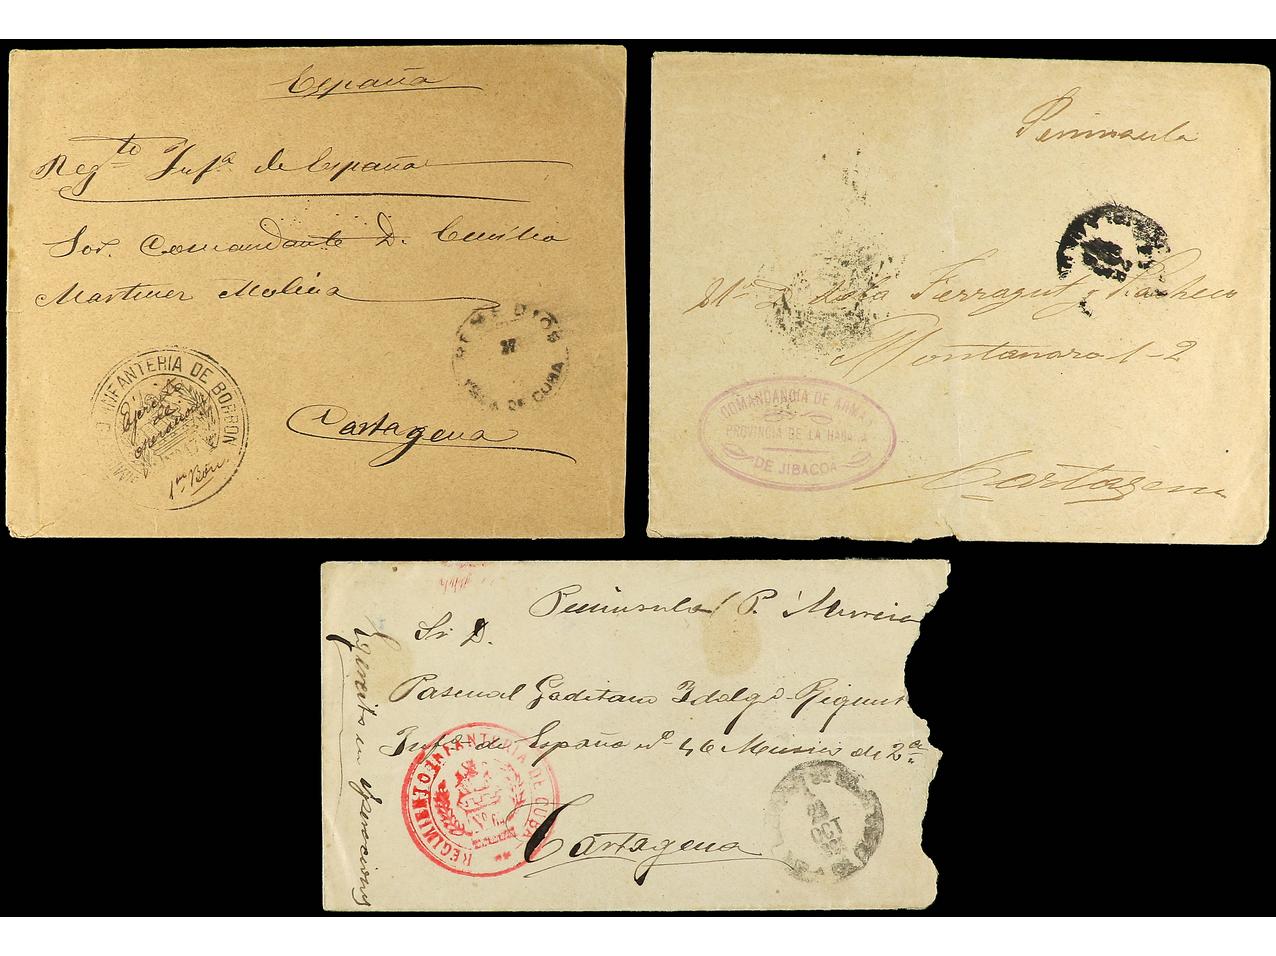 España
Regto Infa de España
Sor. Comandante D. Emilio
Martinez Molina
REMEDIOS
27
ISLA DE CUBA
INFANTERIA DE BORBON
Ejército
de
operaciones
1er Bon.
Cartagena
Peninsula
Lola Ferragut y Pacheco
Montanaro 1-2
COMANDANCIA DE ARMAS
PROVINCIA DE LA HABANA
DE JIBACOA
Cartagena
Peninsula P. Murcia
Sr. D.
Pascual Gaditano Idalgo
Infa de España no 46 Musico de 2a
REGIMIENTO INFANTERIA DE CUBA
23
OCT
Cartagena
Ejercito en operaciones